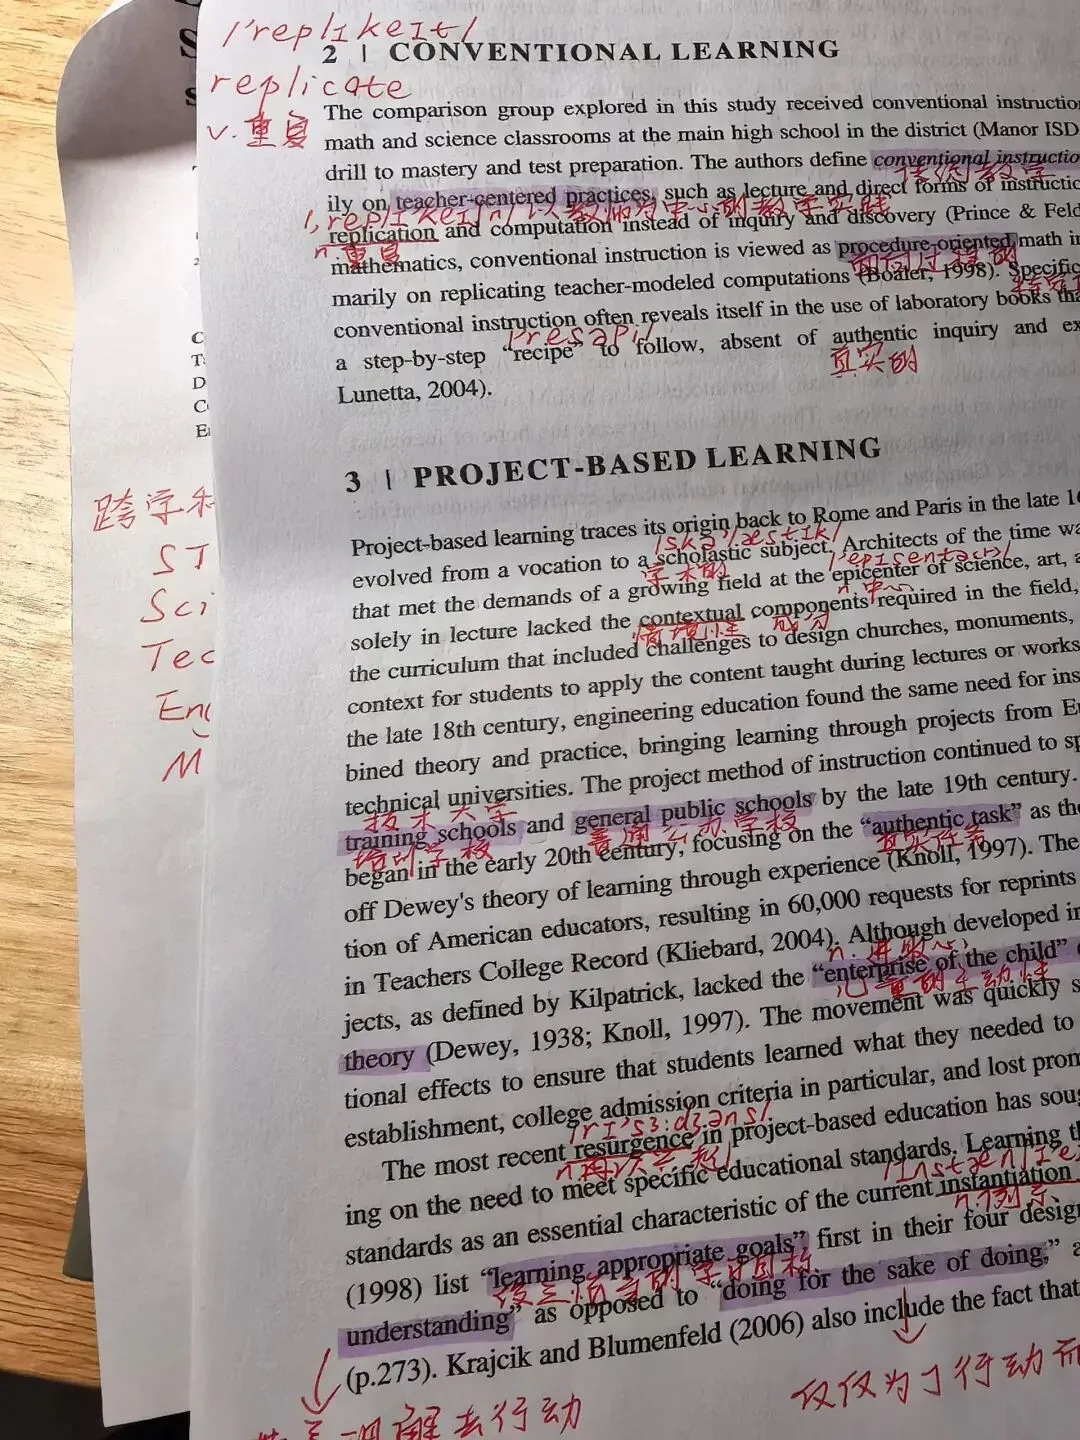 /ˈreplɪkeɪt/
2 | CONVENTIONAL LEARNING
replicate
v. 重复
The comparison group explored in this study received conventional instructio
math and science classrooms at the main high school in the district (Manor ISD
drill to mastery and test preparation. The authors define conventional instructio
传统教学
ily on teacher-centered practices, such as lecture and direct forms of instructio
以教师为中心的教学实践
replication and computation instead of inquiry and discovery (Prince & Feld
n. 重复
mathematics, conventional instruction is viewed as procedure-oriented math in
面向过程的
marily on replicating teacher-modeled computations (Boaler, 1998). Specific
conventional instruction often reveals itself in the use of laboratory books tha
a step-by-step “recipe” to follow, absent of authentic inquiry and ex
真实的
Lunetta, 2004).
3 | PROJECT-BASED LEARNING
跨学科
Project-based learning traces its origin back to Rome and Paris in the late 16
/skəˈlæstɪk/
evolved from a vocation to a scholastic subject. Architects of the time wa
学术的
/ˈepɪsentə(r)/
that met the demands of a growing field at the epicenter of science, art, a
n. 中心
ST
solely in lecture lacked the contextual components required in the field,
情境性 成分
Sci
the curriculum that included challenges to design churches, monuments,
Tec
context for students to apply the content taught during lectures or works
En
the late 18th century, engineering education found the same need for ins
M
bined theory and practice, bringing learning through projects from E
technical universities. The project method of instruction continued to sp
技术大学
training schools and general public schools by the late 19th century.
培训学校 普通公办学校
began in the early 20th century, focusing on the “authentic task” as the
真实任务
off Dewey's theory of learning through experience (Knoll, 1997). The
tion of American educators, resulting in 60,000 requests for reprints
in Teachers College Record (Kliebard, 2004). Although developed in
n. 进取心
jects, as defined by Kilpatrick, lacked the “enterprise of the child”
儿童的主动性
theory (Dewey, 1938; Knoll, 1997). The movement was quickly s
tional effects to ensure that students learned what they needed to
establishment, college admission criteria in particular, and lost prom
/rɪˈsɜːdʒəns/
The most recent resurgence in project-based education has soug
ing on the need to meet specific educational standards. Learning th
standards as an essential characteristic of the current instantiation
n. 例示
(1998) list “learning appropriate goals” first in their four design
设立恰当的学习目标
understanding” as opposed to “doing for the sake of doing,” a
(p.273). Krajcik and Blumenfeld (2006) also include the fact that
仅仅为了行动而
理解去行动